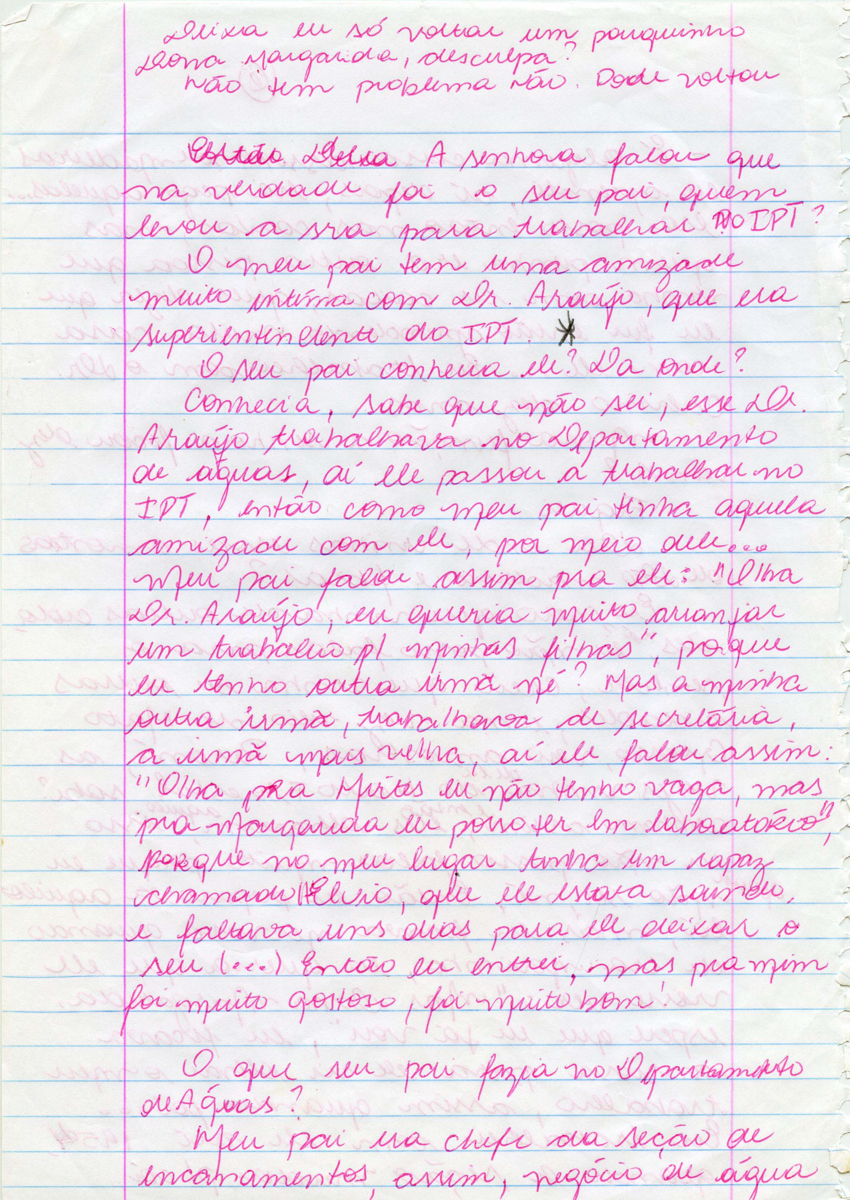 Deixa eu só voltar um pouquinho
Dona Margarida, desculpa?
Não tem problema não. Pode voltar
Então Deixa A senhora falou que
na verdade foi o seu pai, quem
levou a sra para trabalhar NO IPT?
O meu pai tem uma amizade
muito íntima com Dr. Araújo, que era
superientendente do IPT. *
O seu pai conhecia ele? Da onde?
Conhecia, sabe que não sei, esse Dr.
Araújo trabalhava no Departamento
de águas, aí ele passou a trabalhar no
IPT, então como meu pai tinha aquela
amizade com ele, por meio dele...
Meu pai falou assim pra ele: "Olha
Dr. Araújo, eu queria muito arranjar
um trabalho p/ minhas filhas", porque
eu tenho outra irmã né? Mas a minha
outra irmã, trabalhava de secretária,
a irmã mais velha, aí ele falou assim:
"Olha pra eu não tenho vaga, mas
pra Margarida eu posso ter em laboratório",
porque no meu lugar tinha um rapaz
chamado Hélvio, que ele estava saindo,
e faltava uns dias para ele deixar o
seu (...) Então eu entrei, mas pra mim
foi muito gostoso, foi muito bom.
O que seu pai fazia no Departamento
de Águas?
Meu pai era chefe da seção de
encanamentos, assim, negócio de água